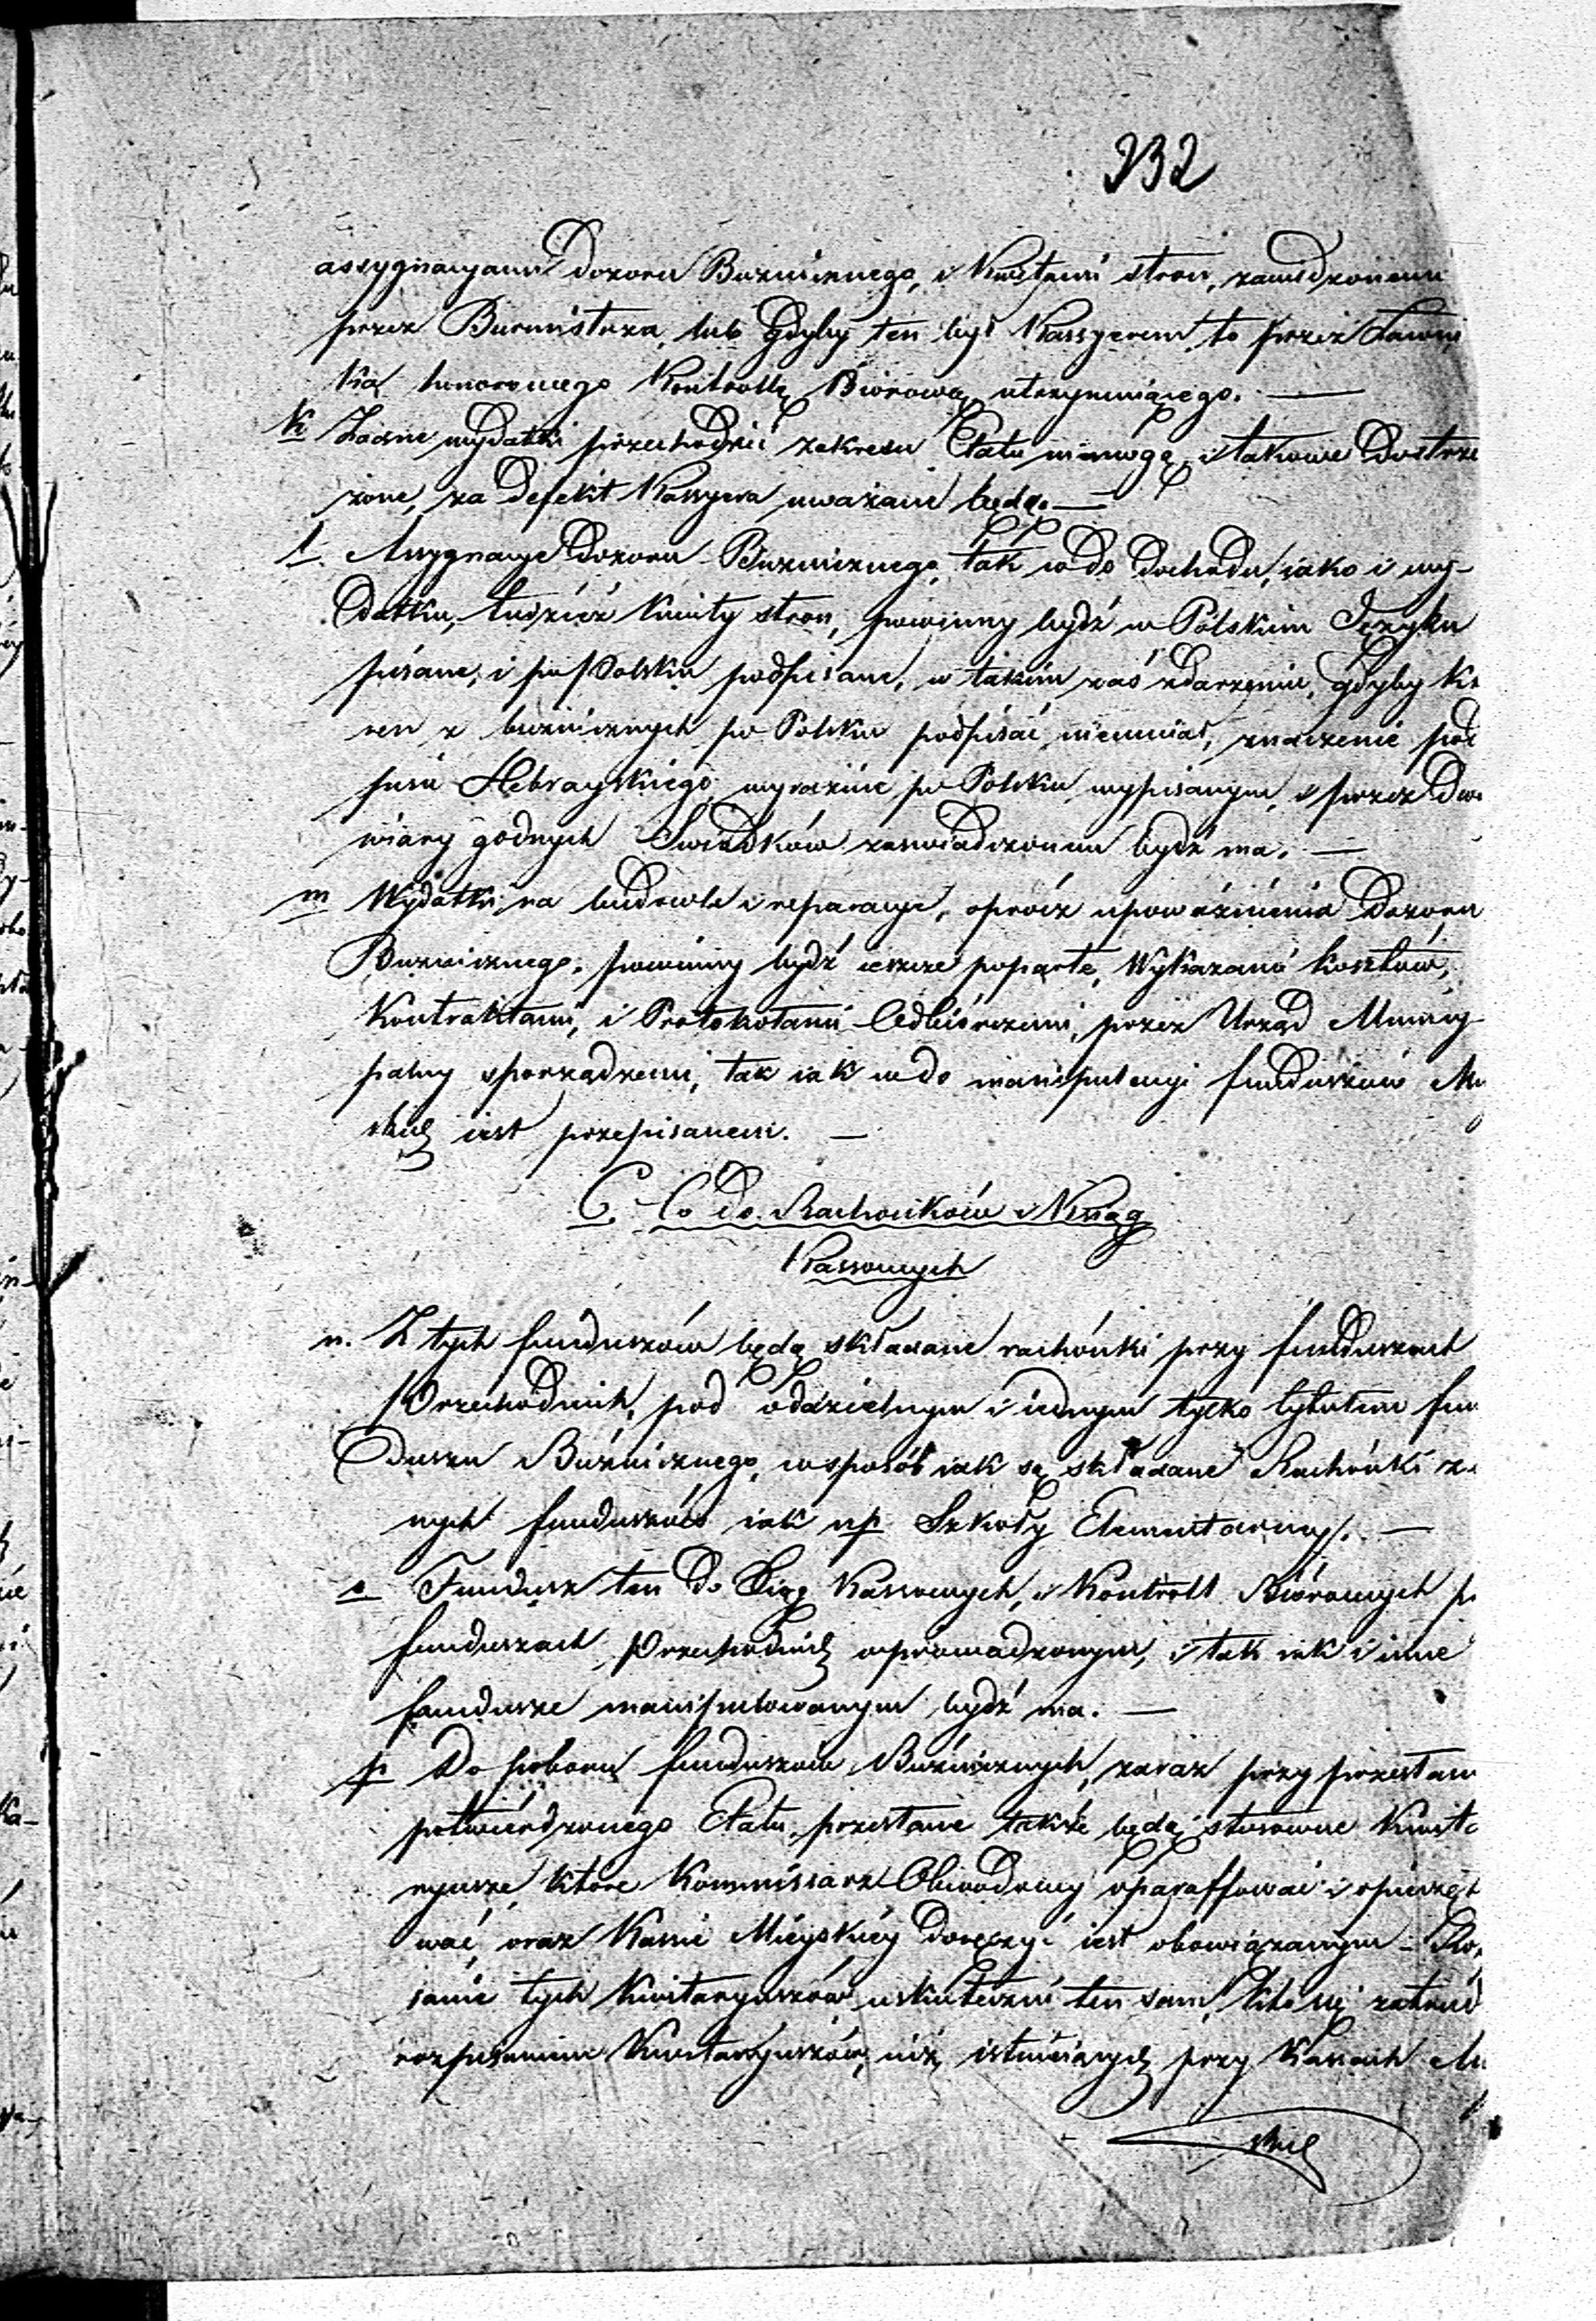 232
assygnacyami Dozoru Bużnicznego, i Kwitami stron, zawidzonemi
przez Burmistrza, lub gdyby ten był Kassyerem, to przez Ławni
ka honorowego Kontrollę Biórową utrzymuiącego. —
k Żadne wydatki przechodzić zakresu Etatu niemogą, i takowe dostrze
żone, za defekt Kassyera uważane będą. —
l. Assygnacye Dozoru Bużnicznego, tak co do dochodu, iako i wy-
datku, tudzież kwity stron, powinny bydź w Polskim Języku
pisane, i po Polsku podpisane, w takim zaś zdarzeniu, gdyby któ
ren z bużnicznych po Polsku podpisać nieumiał, znaczenie pod
pisu Hebrayskiego wyraźnie po Polsku wypisanym, i przez dwo
wiary godnych Swiadków zaswiadczonem bydź ma. —
m Wydatki na budowle i reparacye, oprócz upoważnienia Dozoru
Bużnicznego, powinny bydź ieszcze poparte, Wykazami kosztów,
Kontraktami, i Protokołami Odbiorczemi, przez Urząd Municy-
palny sporządzemi, tak iak co do manipulacyi funduszów Mie
skich iest przepisanem. —
C. Co do Rachunków i Xiąg
Kassowych
n. Z tych funduszów będą składane rachónki przy funduszach
Przechodnich, pod oddzielnym i iednym tylko tytułem fun
duszu Bużnicznego, w sposób iak są składane Rachónki z
nych funduszów iak np. Szkoły Elementarney. —
o Fundusz ten do Xiąg Kassowych, i Kontroll Biórowych p
funduszach Przechodnich wprowadzonym, i tak iak i inne
fundusze manipulowanym bydź ma. —
p Do poboru funduszów Bużnicznych, zaraz przy przesłani
potwierdzonego Etatu, przesłane także będą stosowne Kwita
ryusze, które Kommissarz Obwodowy oparaffować i opieczęt
wać, oraz Kassie Mieyskiey doręczyć iest obowiązanym – Roz
sanie tych Kwitaryuszów uskuteczni ten sam, kto się zatrud
rozpisaniem Kwitaryuszów, iuż istnieiących przy Kassach Mi
skich